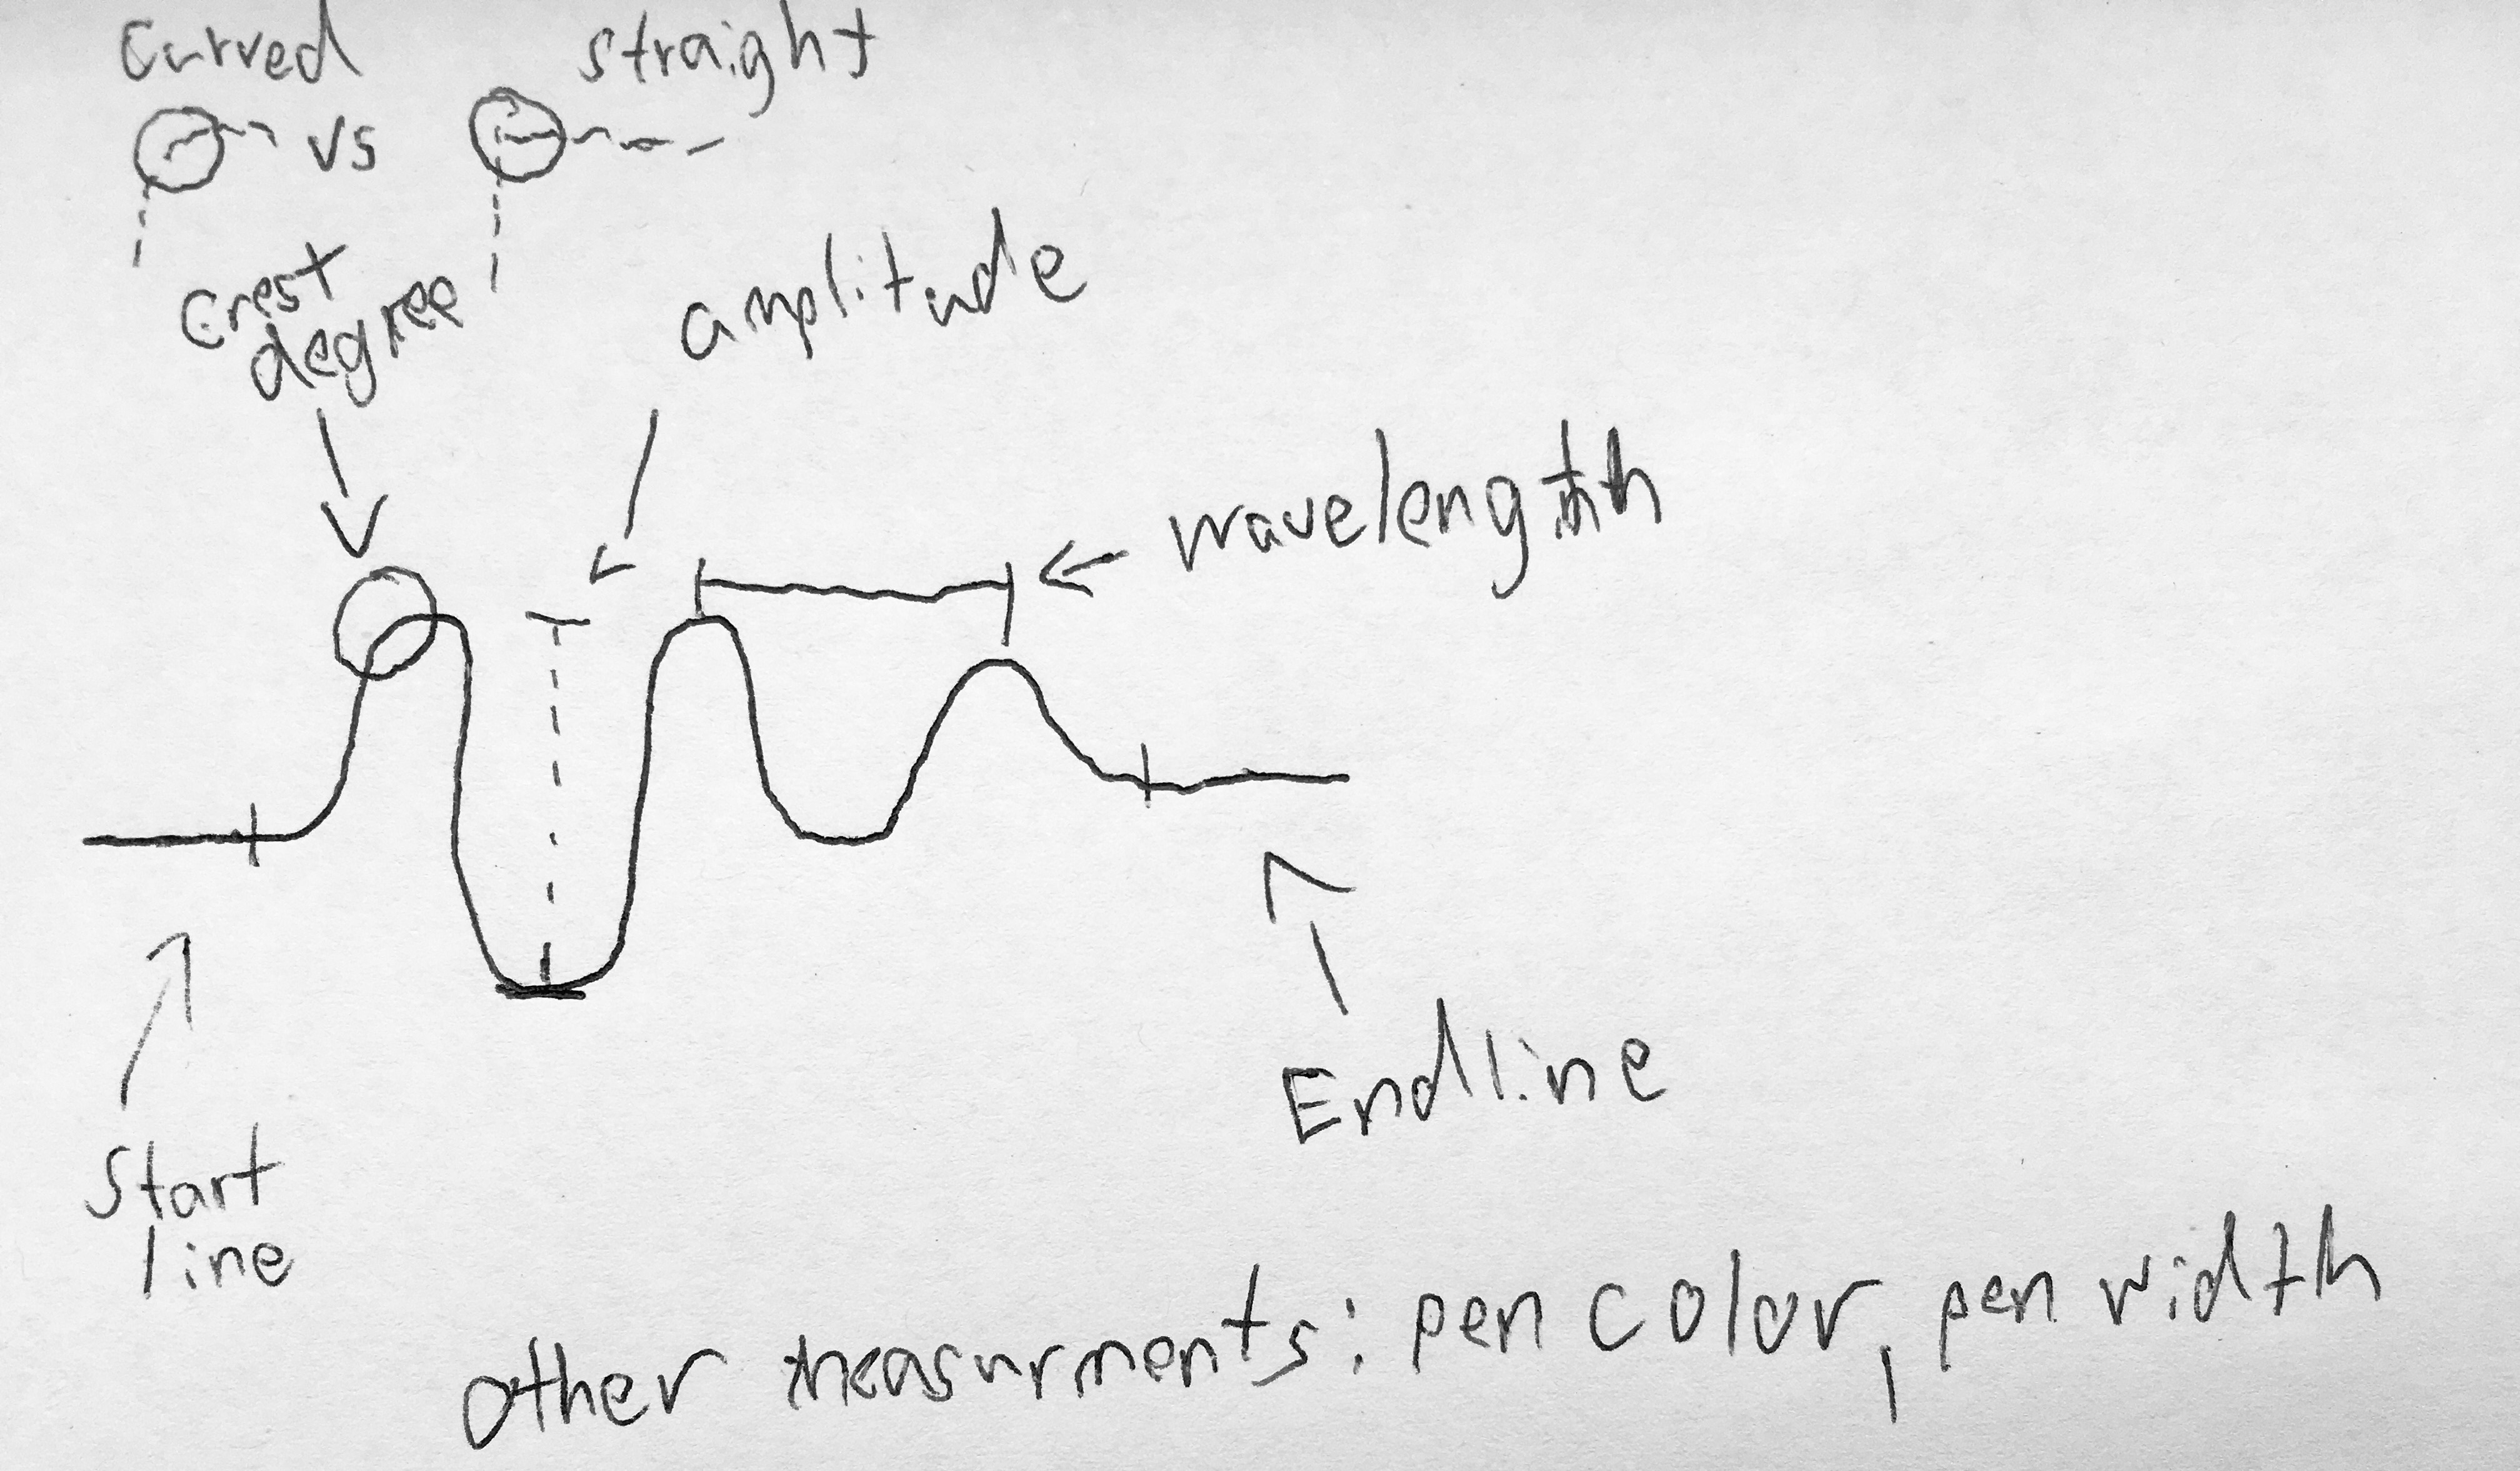 Curved
vs
straight
Crest
degree
amplitude
wavelength
Start
line
Endline
other measurments: pen color, pen width